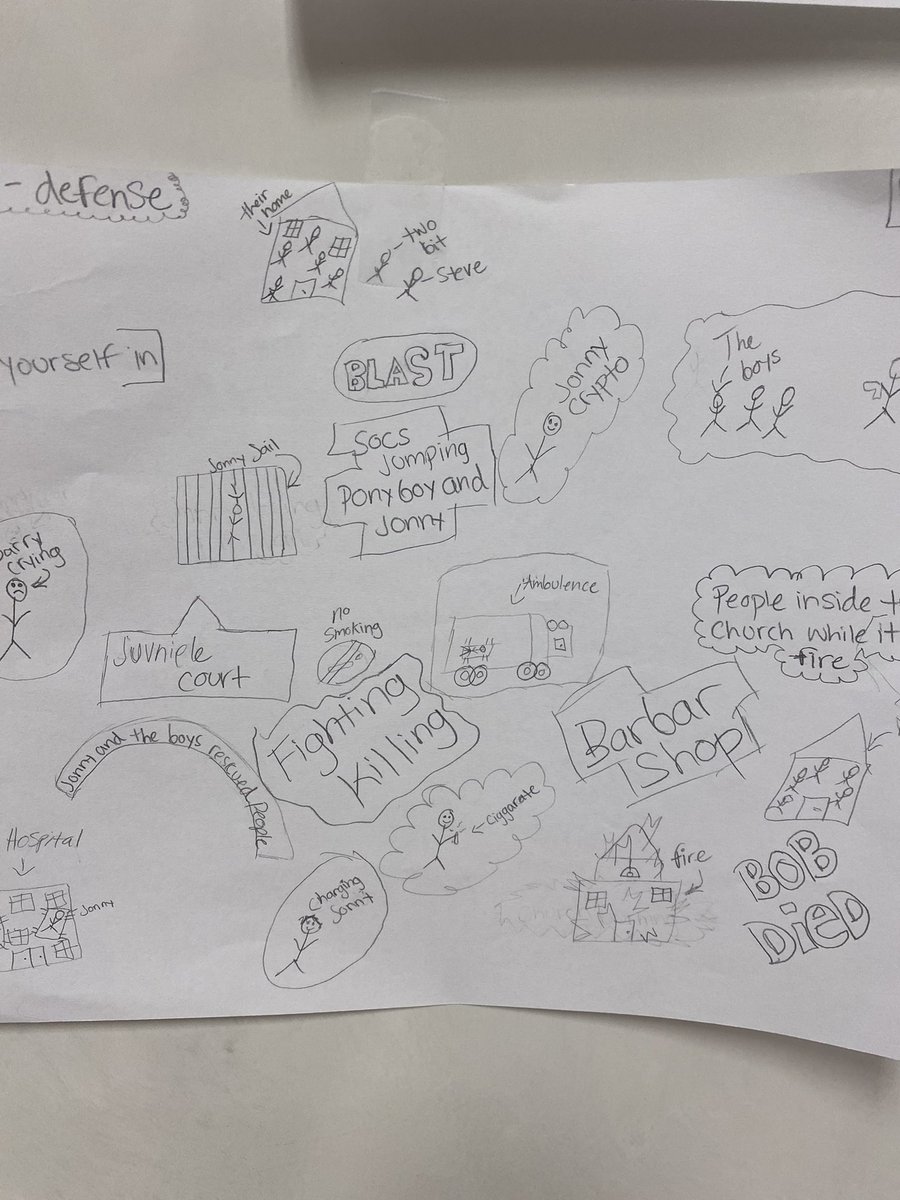 - defense
their
home
two
bit
Steve
yourself in
BLAST
Jonny
Crypto
The
boys
Socs
Jumping
Ponyboy and
Jonny
Jonny Jail
crying
Ambulence
People inside
Church while it
fire
no
smoking
Juvniele
court
Fighting
Killing
Barbar
Shop
Jonny and the boys rescued People
Ciggarate
Hospital
Jonny
Changing
Jonny
fire
BOB
DiED